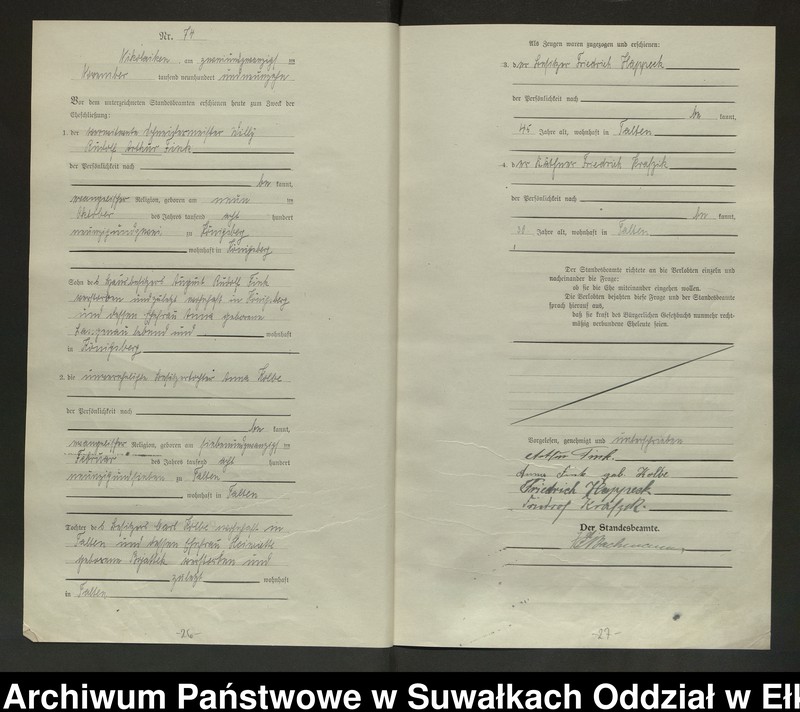 Nr. 74
Nikolaiken am zweiundzwanzigsten
November tausend neunhundert undneunzehn
Vor dem unterzeichneten Standesbeamten erschienen heute zum Zweck der
Eheschließung:
1. der verwitwete Schneidermeister Willy
Rudolf Arthur Fink
der Persönlichkeit nach
be kannt,
evangelischer Religion, geboren am neun ten
Oktober des Jahres tausend acht hundert
zu Königsberg
wohnhaft in Königsberg
Sohn des Hausbesitzers August Rudolf Fink
verstorben und zuletzt wohnhaft in Königsberg
und dessen Ehefrau Anna geborene
lebend und wohnhaft
in Königsberg
2. die unverehelichte Besitzertochter Anna Kolbe
der Persönlichkeit nach
be kannt,
evangelischer Religion, geboren am siebenundzwanzigsten
Februar des Jahres tausend acht hundert
neunzigundsieben zu Talten
wohnhaft in Talten
Tochter des Besitzers Carl Kolbe wohnhaft in
Talten und dessen Ehefrau
geborene verstorben und
zuletzt wohnhaft
in Talten
-26-
Als Zeugen waren zugezogen und erschienen:
3. der Besitzer Friedrich Kappeck
der Persönlichkeit nach
be kannt,
45 Jahre alt, wohnhaft in Talten
4. der Käthner Friedrich Krafzik
der Persönlichkeit nach
be kannt,
Jahre alt, wohnhaft in Talten
Der Standesbeamte richtete an die Verlobten einzeln und
nacheinander die Frage:
ob sie die Ehe miteinander eingehen wollen.
Die Verlobten bejahten diese Frage und der Standesbeamte
sprach hierauf aus,
daß sie kraft des Bürgerlichen Gesetzbuchs nunmehr recht-
mäßig verbundene Eheleute seien.
Vorgelesen, genehmigt und unterschrieben
Arthur Fink.
Anna Fink geb. Kolbe
Friedrich Kappeck
Friedrich Krafzik.
Der Standesbeamte.
-27-
Archiwum Państwowe w Suwałkach Oddział w Ełk